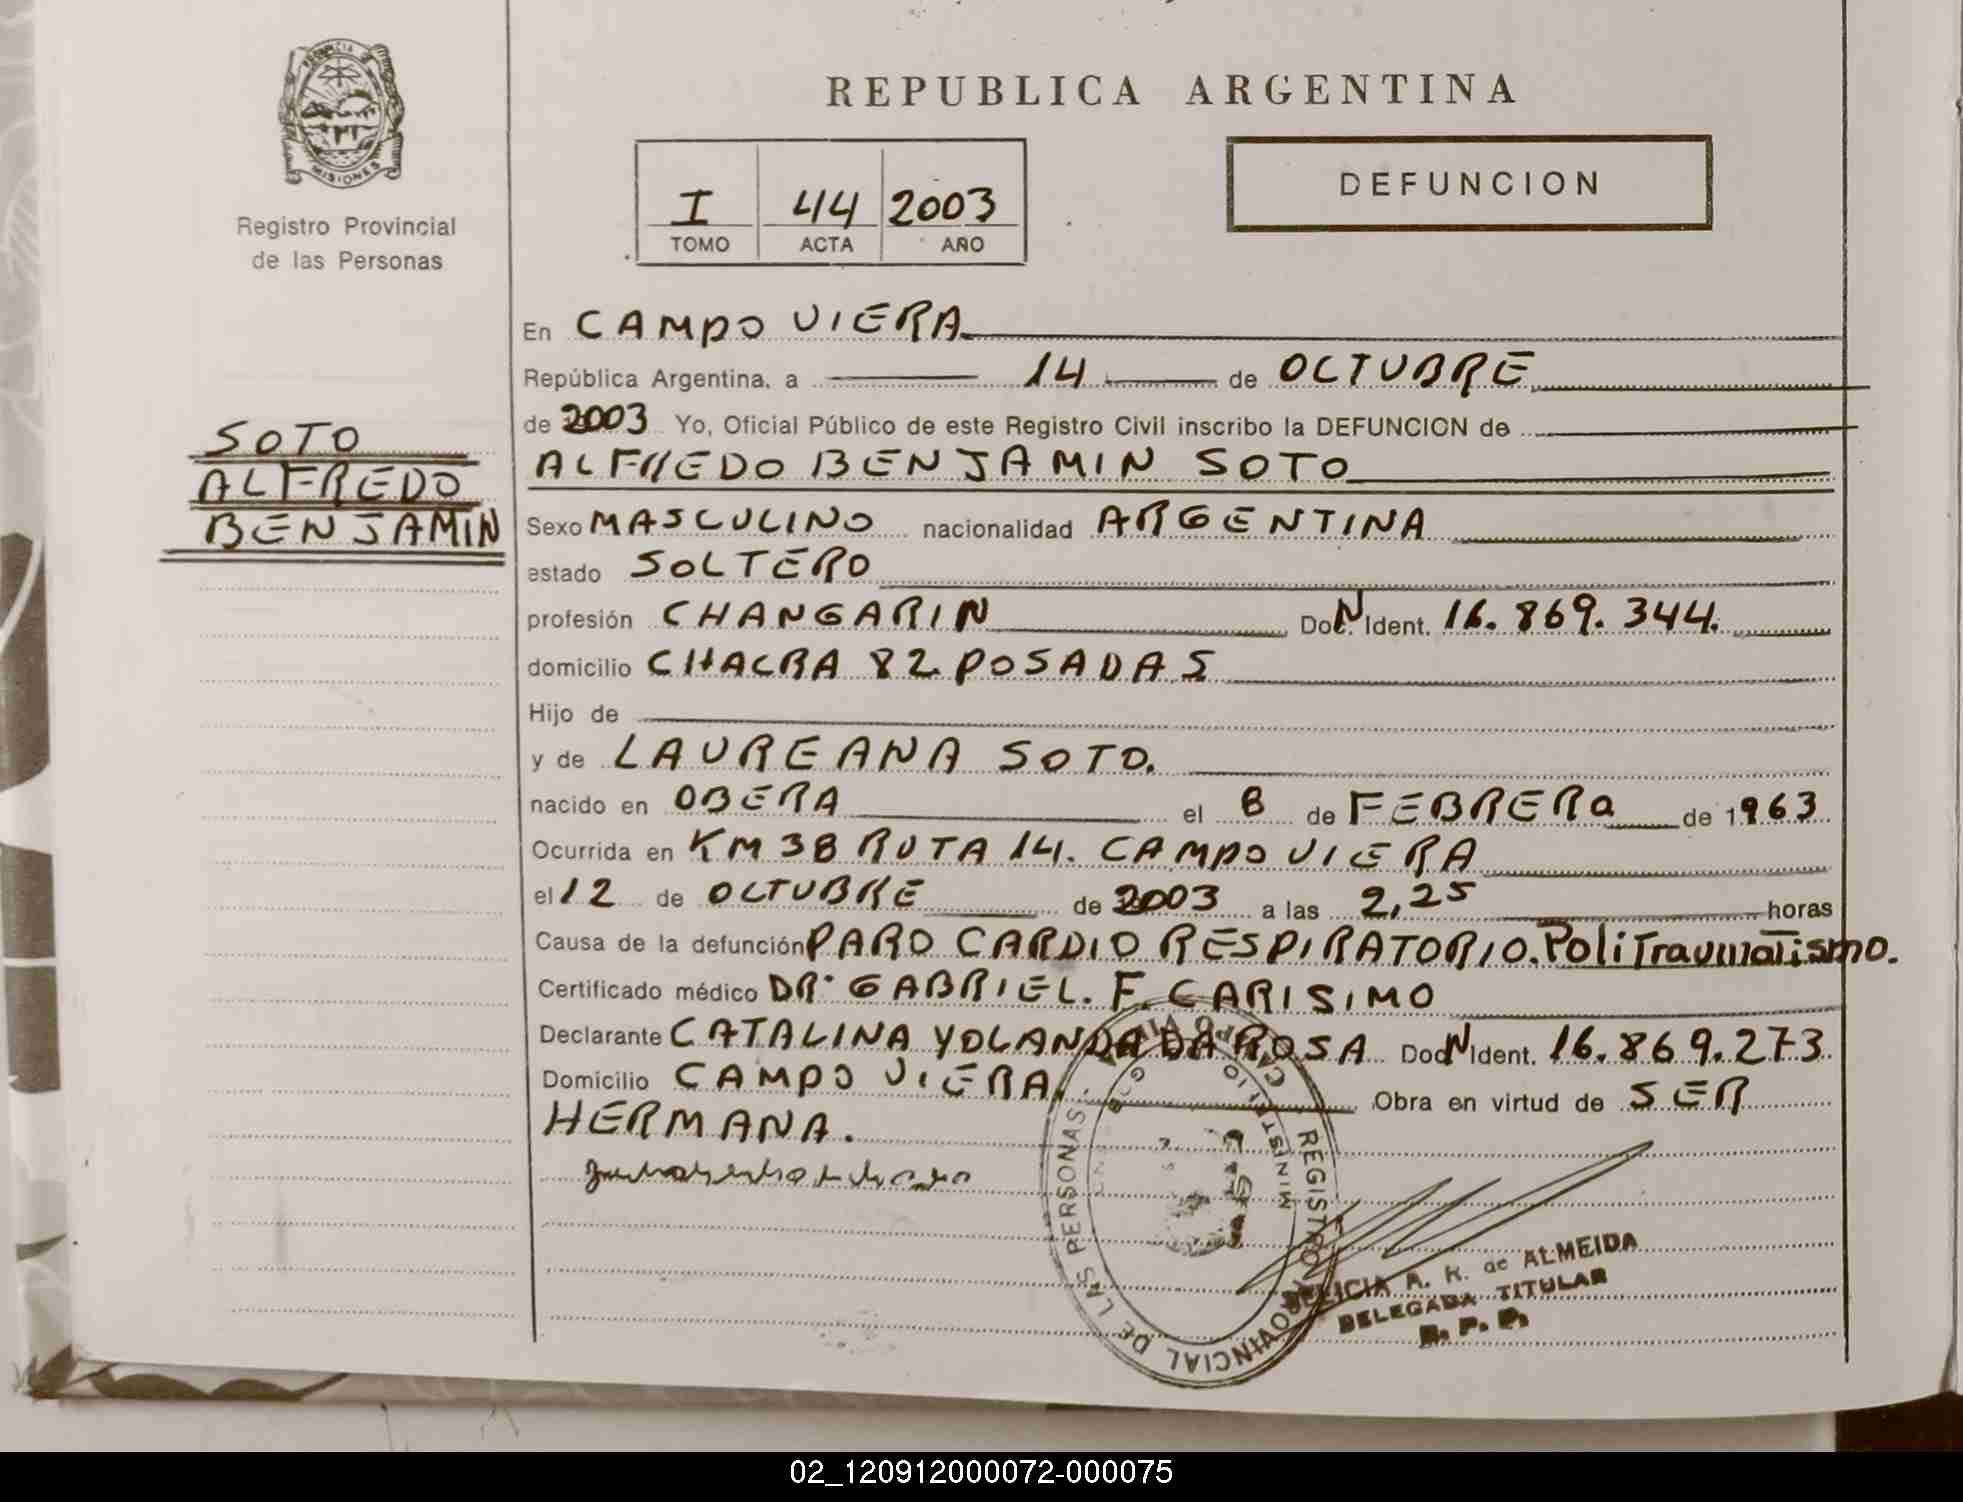 PROVINCIA DE
MISIONES
Registro Provincial
de las Personas
REPUBLICA ARGENTINA
I 44 2003
TOMO ACTA AÑO
DEFUNCION
En CAMPO VIERA
República Argentina, a 14 de OCTUBRE
de 2003 Yo, Oficial Público de este Registro Civil inscribo la DEFUNCION de
SOTO
ALFREDO
BENJAMIN
ALFREDO BENJAMIN SOTO
Sexo MASCULINO nacionalidad ARGENTINA
estado SOLTERO
profesión CHANGARIN Doc. N Ident. 16.869.344.
domicilio CHACRA 82 POSADAS
Hijo de
y de LAUREANA SOTO.
nacido en OBERA el 8 de FEBRERO de 1963
Ocurrida en KM 38 RUTA 14. CAMPO VIERA
el 12 de OCTUBRE de 2003 a las 2,25 horas
Causa de la defunción PARO CARDIO RESPIRATORIO. PoliTraumaTismo.
Certificado médico DR. GABRIEL. F. CARISIMO
Declarante CATALINA YOLANDA DA ROSA Doc N Ident. 16.869.273
Domicilio CAMPO VIERA. Obra en virtud de SER
HERMANA.
REGISTRO PROVINCIAL DE LAS PERSONAS
CAMPO VIERA
A. R. de ALMEIDA
DELEGADA TITULAR
R. P. P.
02_120912000072-000075